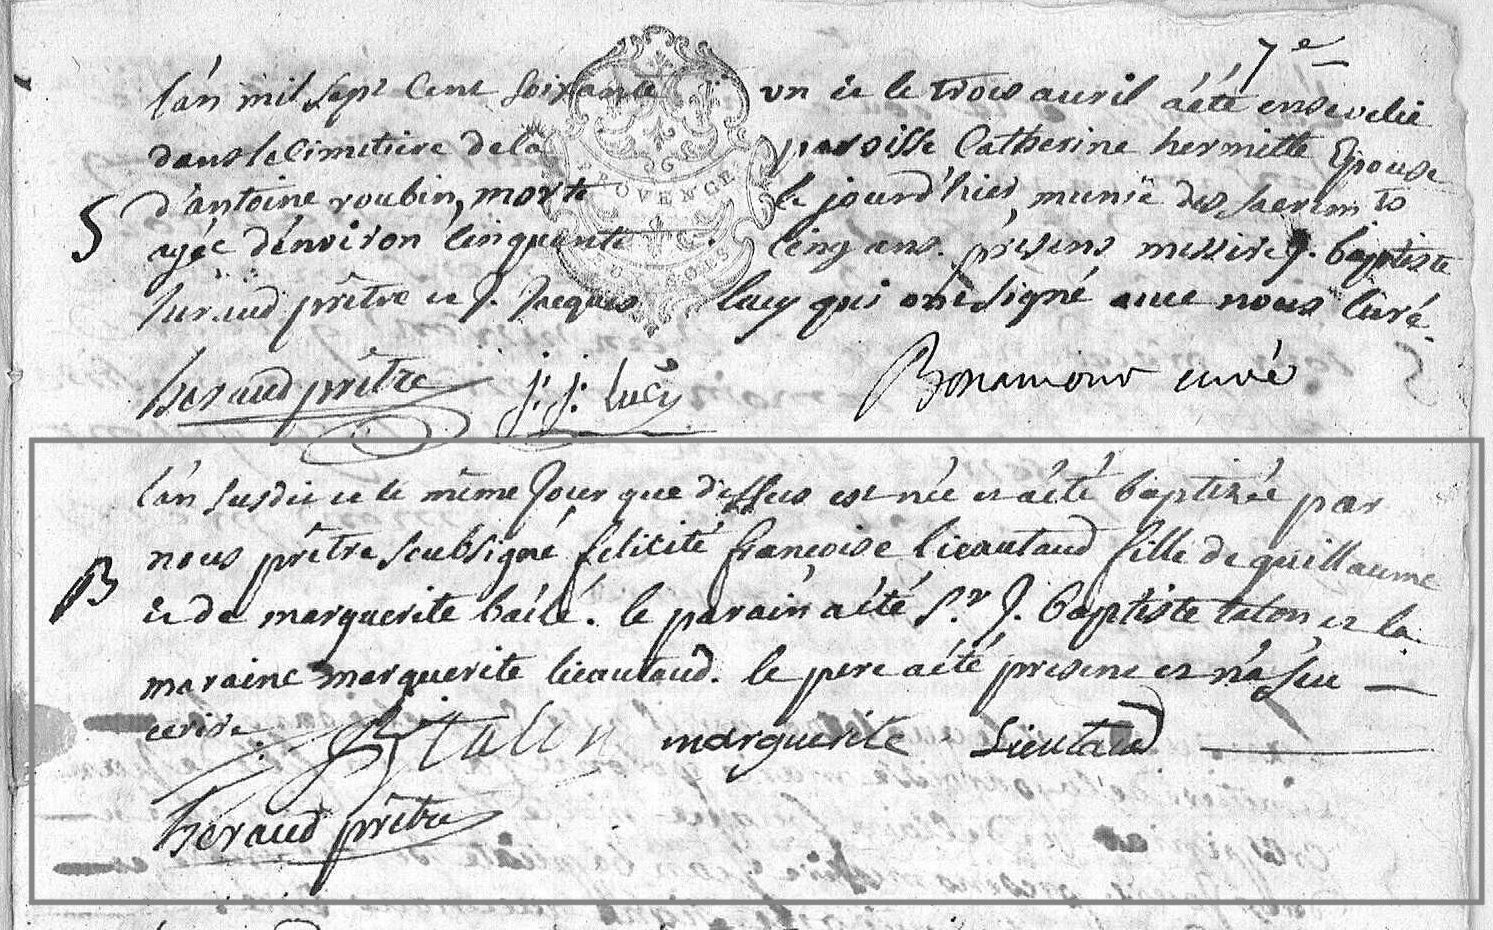 7e
l'an mil sept cent soixante un et le trois avril a été ensevelie
dans le cimetiere de la paroisse Catherine hermitte Epouse
S d'antoine roubin, morte le jourd'hier munie des sacremts
agée d'environ cinquante cinq ans. présens messire J. baptiste
heraud prêtre et J. Jacques lucy qui ont signé avec nous curé.
PROVENCE
heraud prêtre J. J. lucy Bonamour curé
l'an susdit et le même Jour que dessus est née et a été baptisée par
nous prêtre soubsigné felicité françoise lieautaud fille de guillaume
B et de marguerite baile. le parain a été Sr. J. baptiste talon et la
maraine marguerite lieautaud. le pere a été present et n'a sceu
ecrire. talon marguerite Lieutaud
heraud prêtre